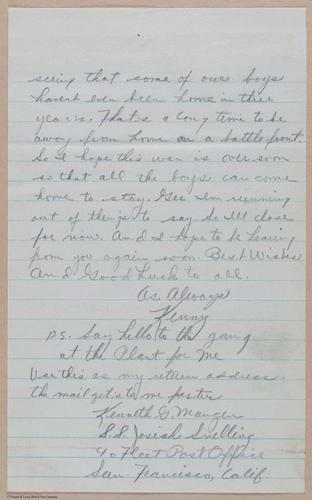 seeing that some of our boys
havent even been home in three
years. That's a long time to be
away from home on a battlefront.
So I hope this war is over soon
so that all the boys can come
home to stay. Gee I'm running
out of things to say. So I'll close
for now. And I hope to be hearing
from you again soon. Best Wishes
And Good Luck to all.
As Always
Kenny
P.S. Say hello to the gang
at the Plant for me
Use this as my return address.
the mail gets to me faster
Kenneth G.
S.S. Josiah Snelling
c/o Fleet Post Office
San Francisco, Calif.